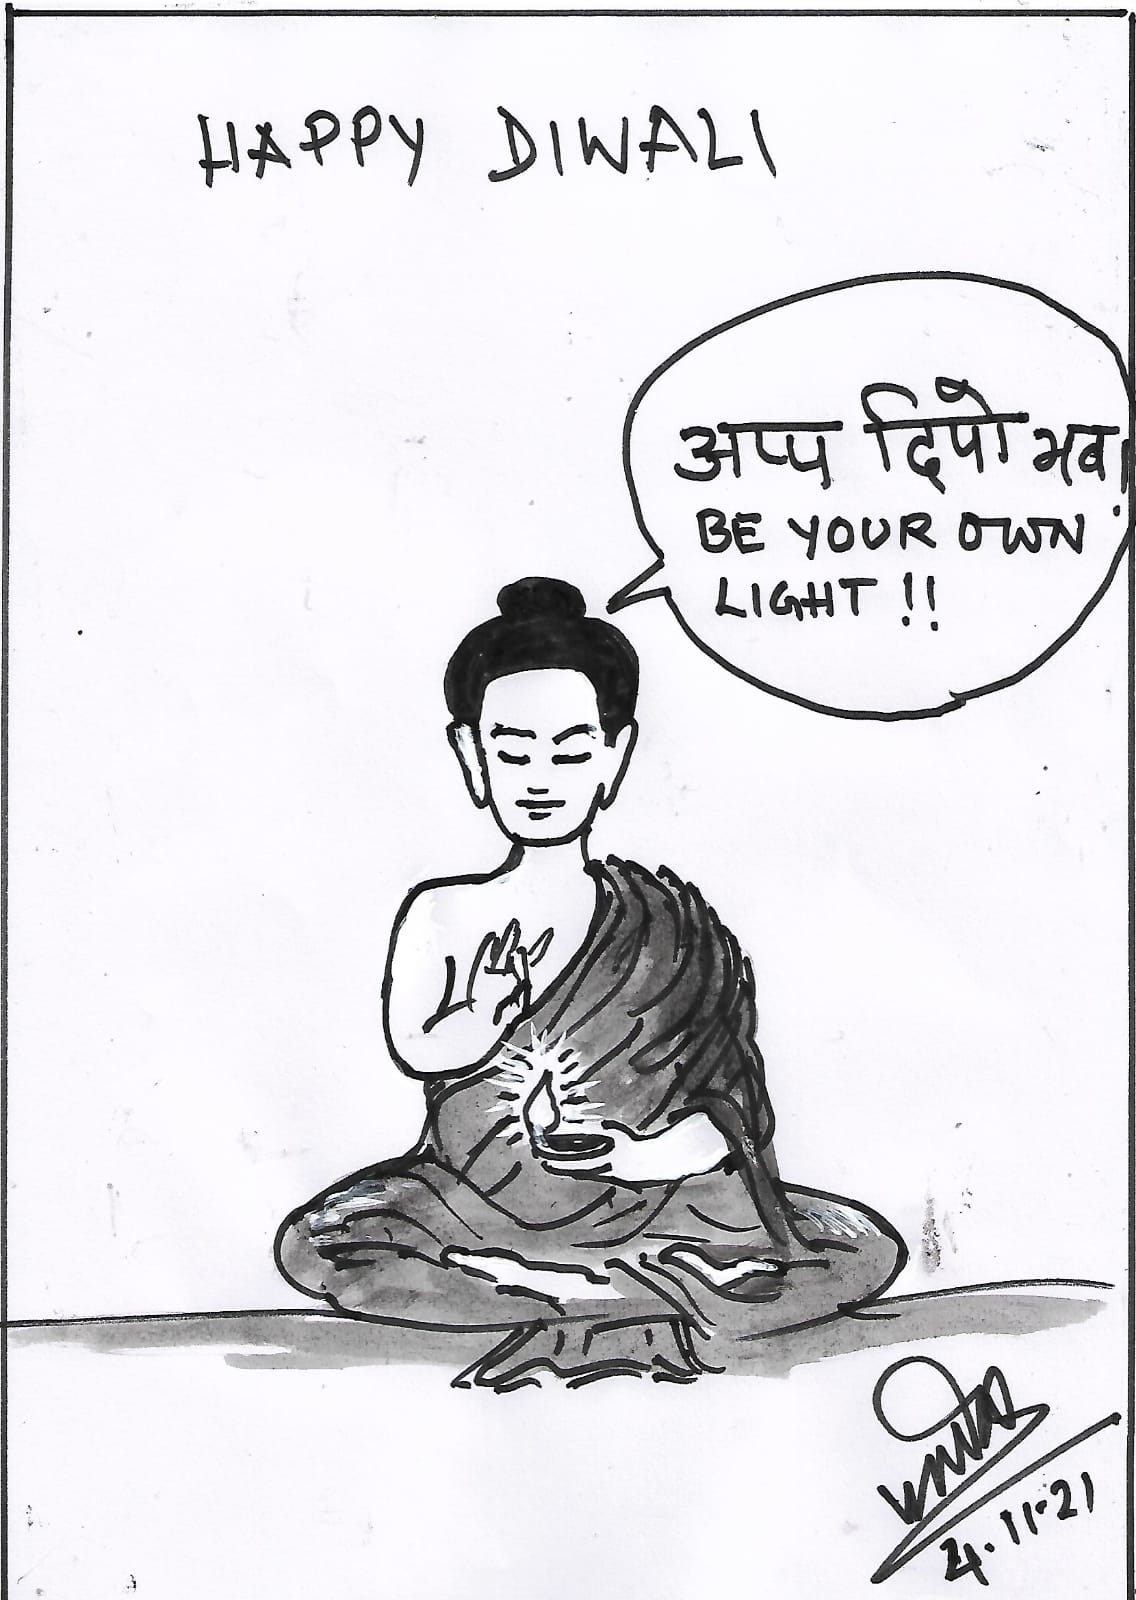 HAPPY DIWALI
अप्प दिपो भव!
BE YOUR OWN
LIGHT !!
4.11.21